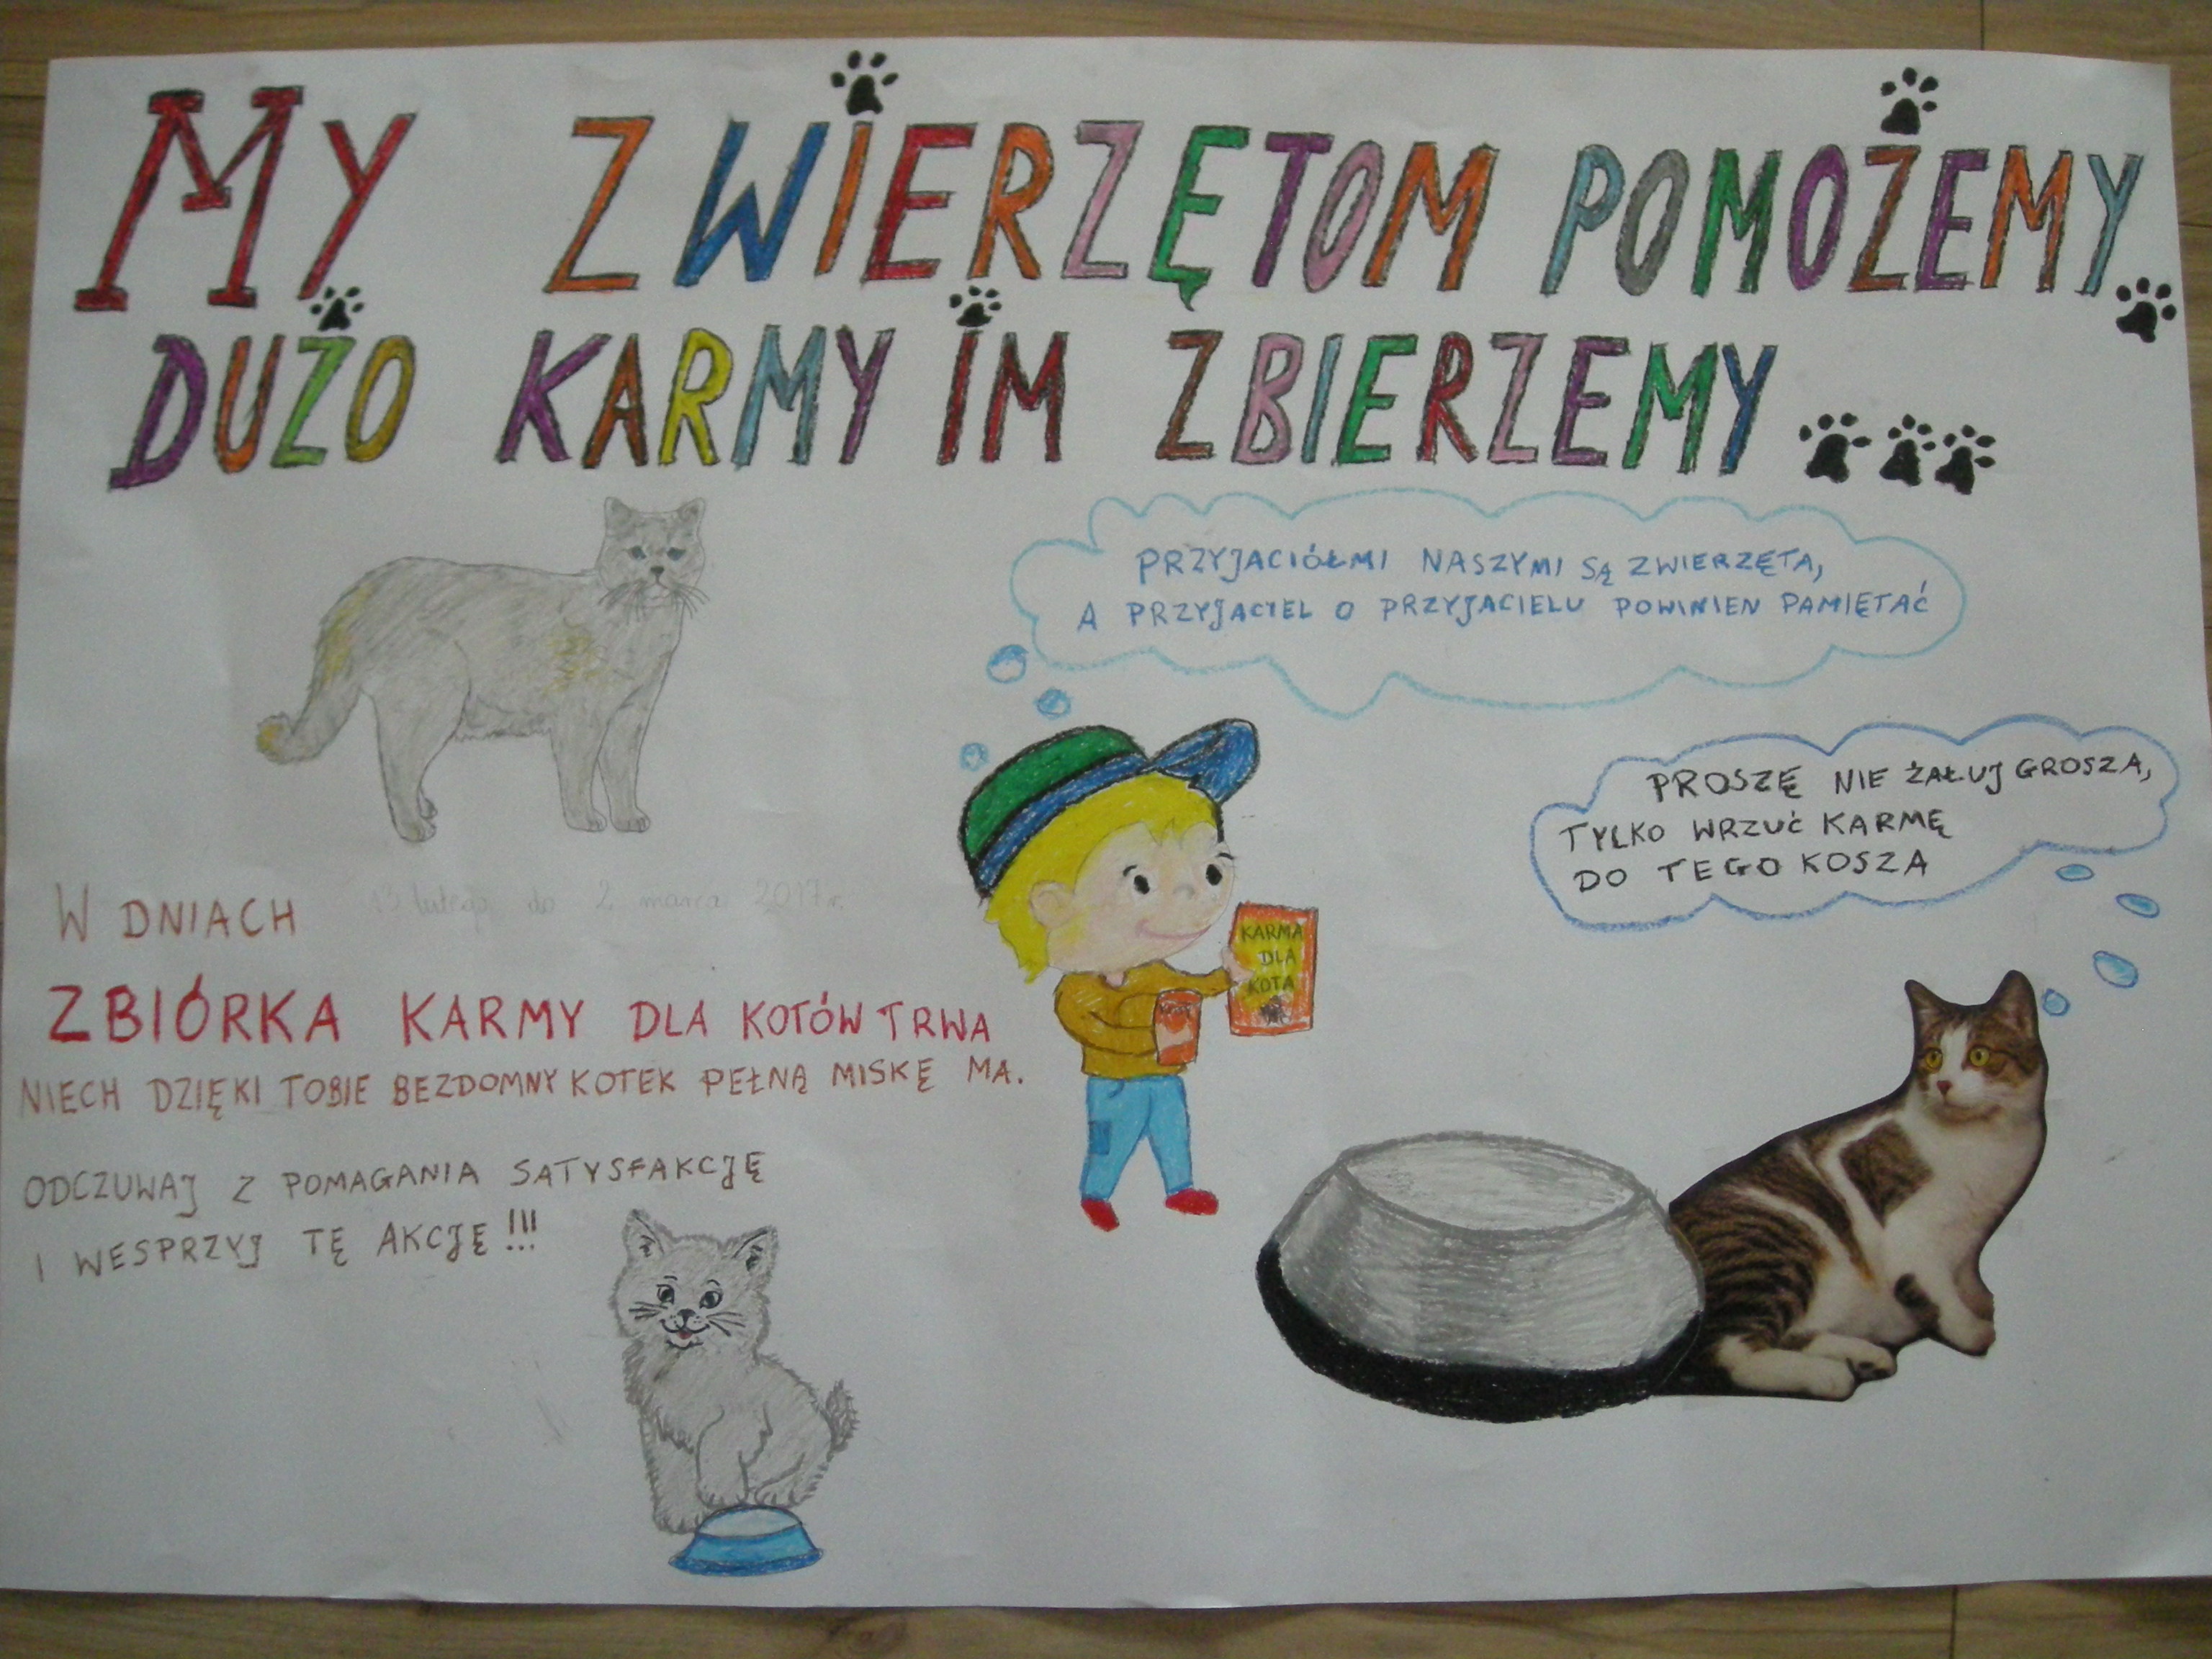 MY ZWIERZĘTOM POMOŻEMY
DUŻO KARMY IM ZBIERZEMY...
PRZYJACIÓŁMI NASZYMI SĄ ZWIERZĘTA,
A PRZYJACIEL O PRZYJACIELU POWINIEN PAMIĘTAĆ
PROSZĘ NIE ŻAŁUJ GROSZA,
TYLKO WRZUĆ KARMĘ
DO TEGO KOSZA
W DNIACH 13 lutego do 2 marca 2017 r.
ZBIÓRKA KARMY DLA KOTÓW TRWA
NIECH DZIĘKI TOBIE BEZDOMNY KOTEK PEŁNĄ MISKĘ MA.
ODCZUWAJ Z POMAGANIA SATYSFAKCJĘ
I WESPRZYJ TĘ AKCJĘ!!!
KARMA
DLA
KOTA